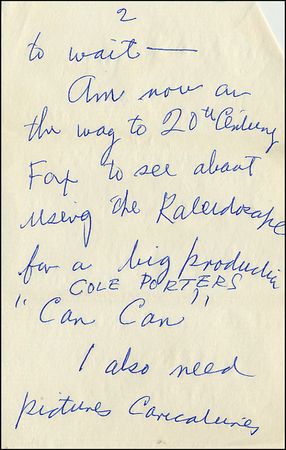 2
to wait —
Am now on
the way to 20th Century
Fox to see about
using the Kaleidoscape
for a big production
COLE PORTERS
"Can Can"
I also need
pictures Caricatures